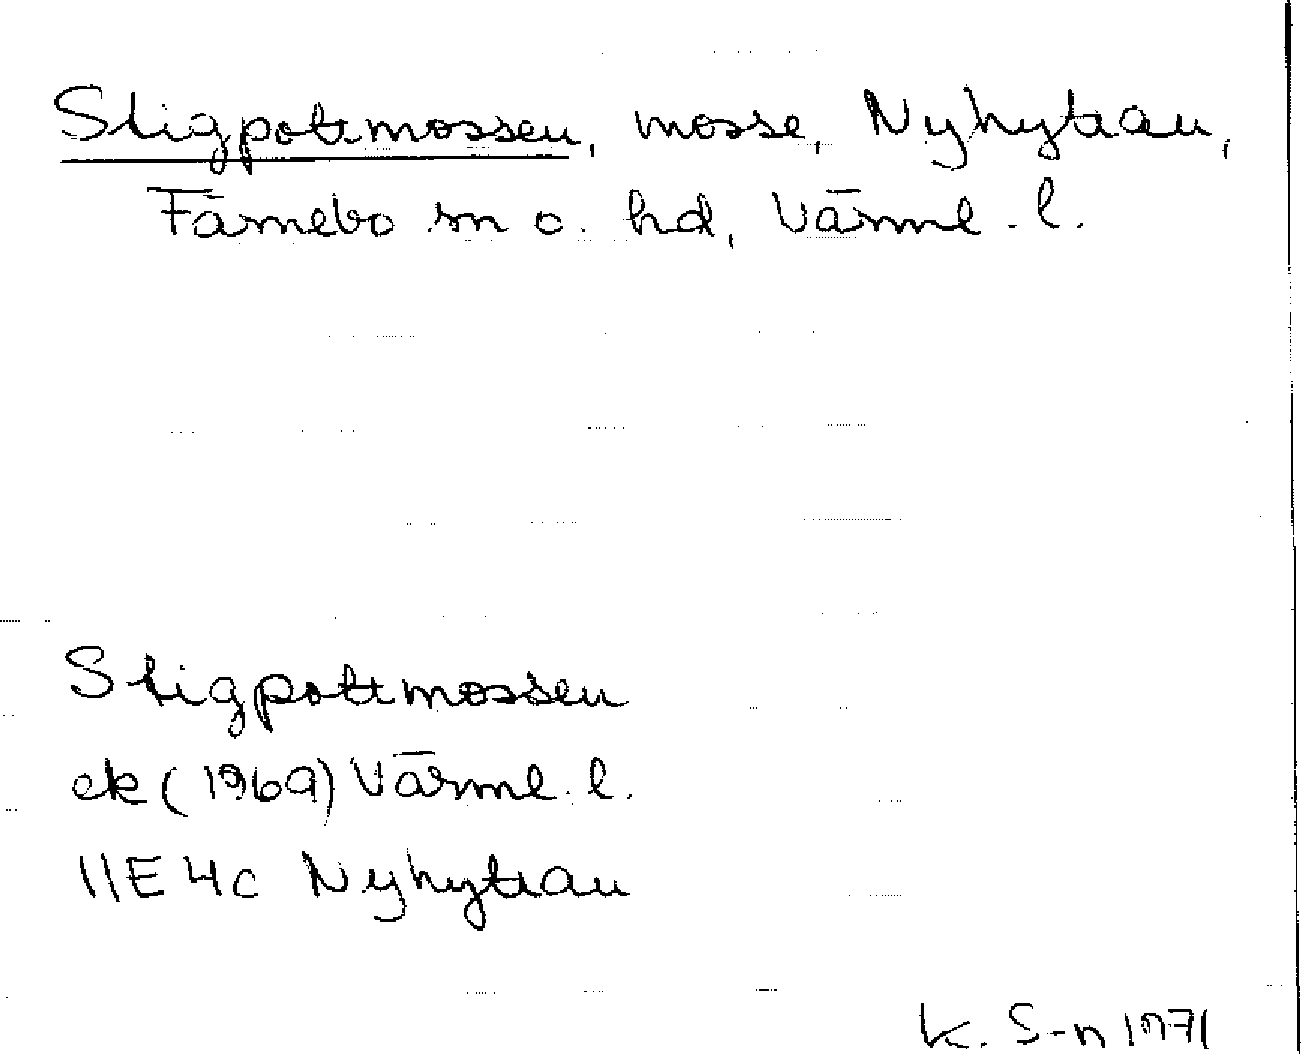 Stigpottmossen, mosse, Nyhyttan,
Färnebo sn o. hd, Värml. l.
Stigpottmossen
ek (1969) Värml. l.
11E 4c Nyhyttan
K. S-n 1971